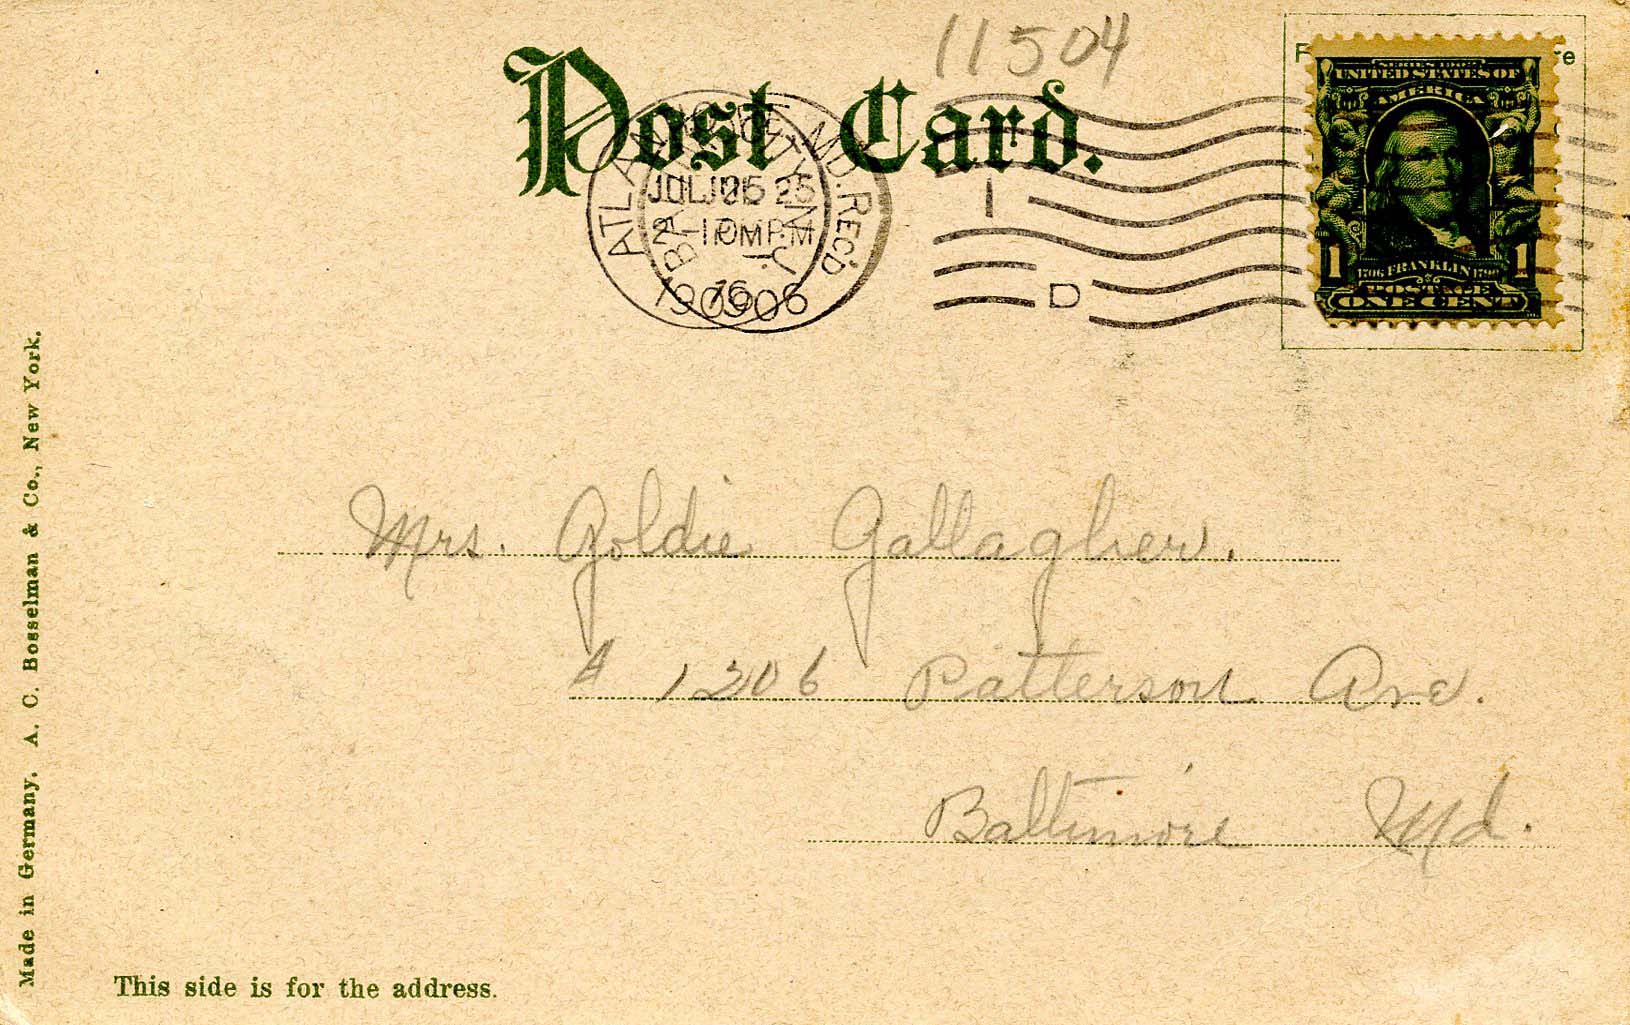 11504
Post Card.
ATLANTIC CITY, N.J.
JUL 25
1906
MD. REC'D.
JUL 25
1906
D
SERIES 1902
UNITED STATES OF
AMERICA
1706 FRANKLIN 1790
POSTAGE
1 1
ONE CENT
Mrs. Goldie Gallagher.
# 1206 Patterson Ave.
Baltimore Md.
Made in Germany. A. C. Bosselman & Co., New York.
This side is for the address.